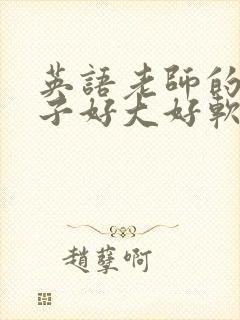 英語老師的
子好大好軟
趙孽啊